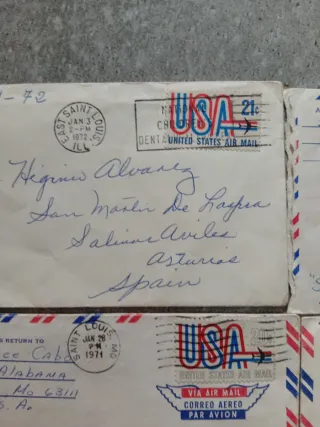 -72
EAST SAINT LOUIS
JAN 3
2-PM
1972
ILL
NATIONAL
CHILDREN
DENTAL
USA 21c
UNITED STATES AIR MAIL
Higinio Alvarez
San Martin De Laspra
Salinas Aviles
Asturias
Spain
RETURN TO
SAINT LOUIS, MO
JAN 28
PM
1971
USA
UNITED STATES AIR MAIL
Alabama
Mo 63111
S. A.
VIA AIR MAIL
CORREO AEREO
PAR AVION